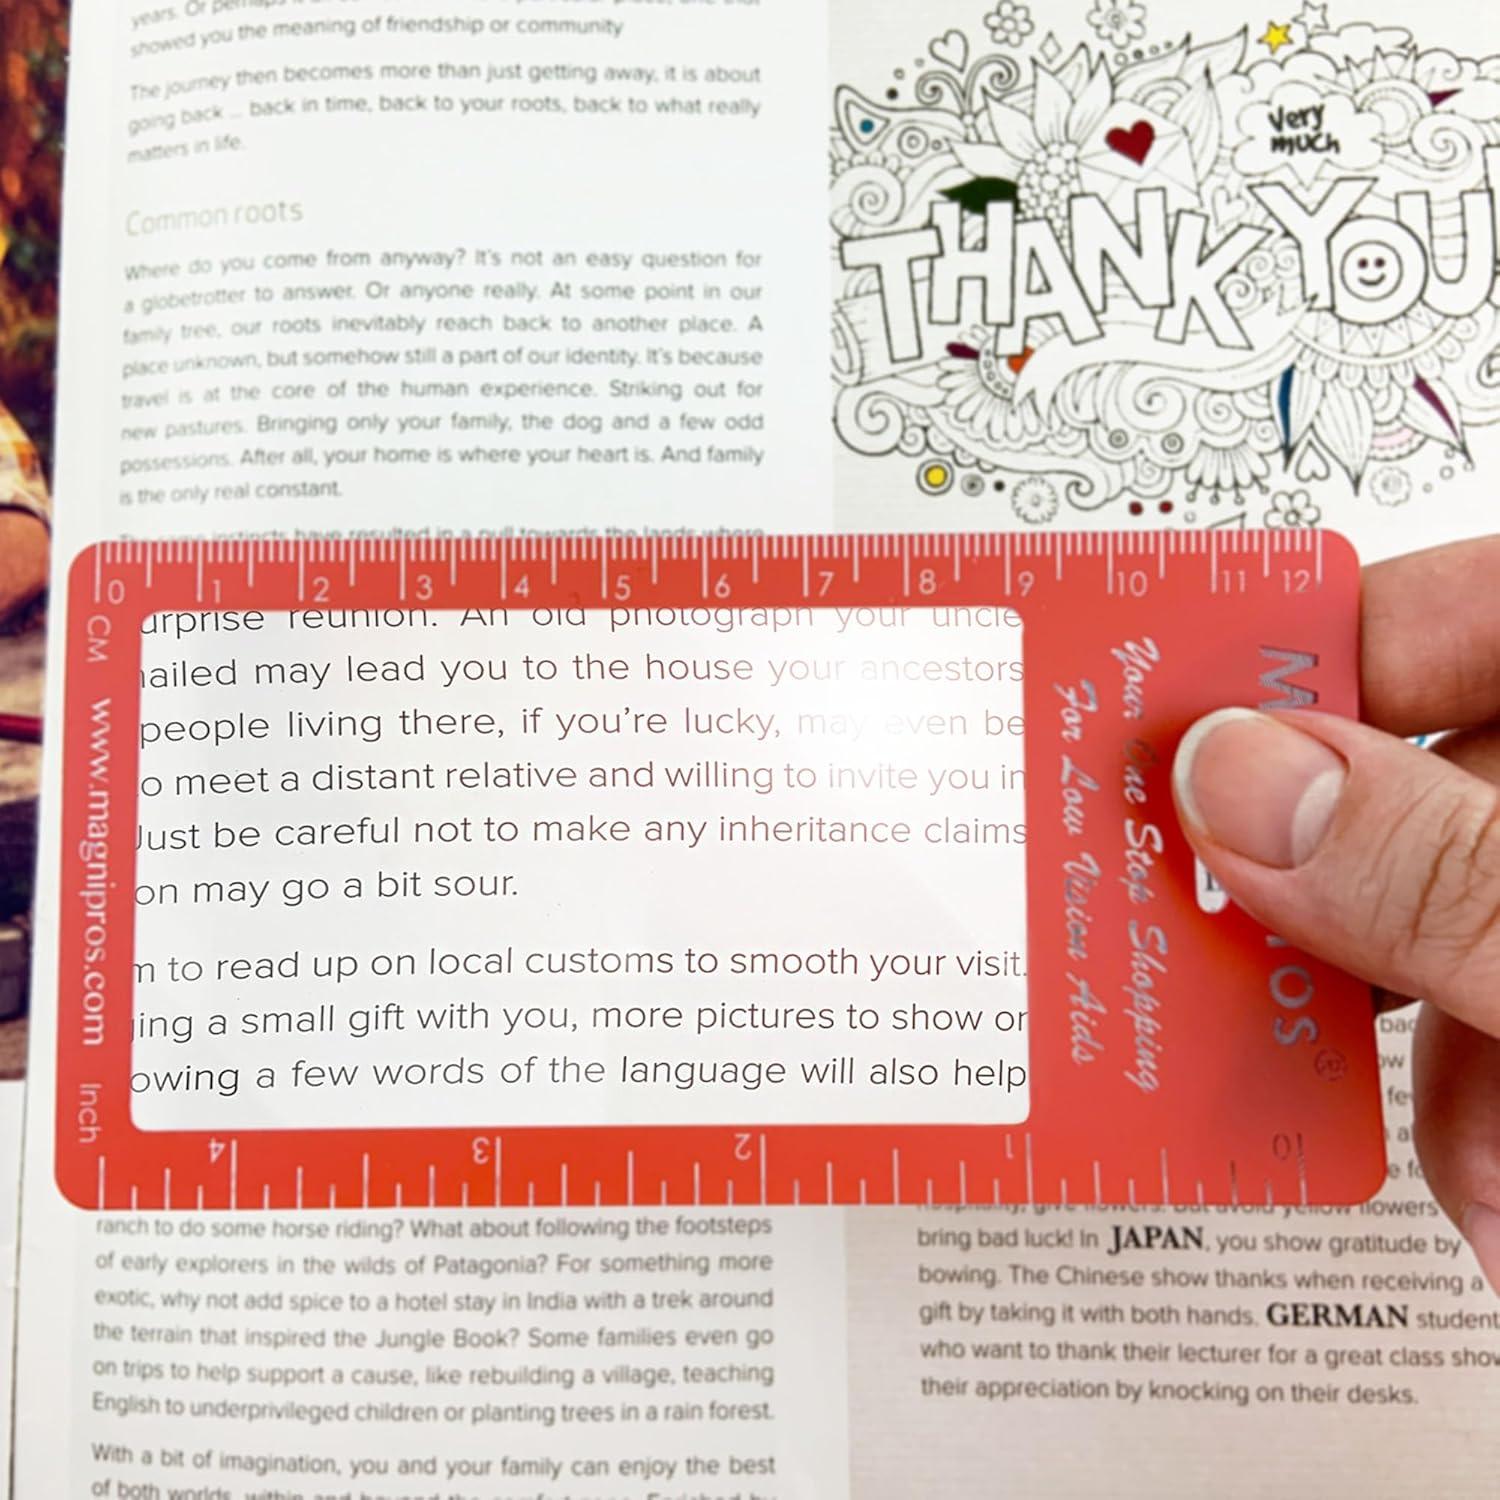 years. Or
showed you the meaning of friendship or community
The journey then becomes more than just getting away, it is about
going back ... back in time, back to your roots, back to what really
matters in life.
Common roots
Where do you come from anyway? It's not an easy question for
a globetrotter to answer. Or anyone really. At some point in our
family tree, our roots inevitably reach back to another place. A
place unknown, but somehow still a part of our identity. It's because
travel is at the core of the human experience. Striking out for
new pastures. Bringing only your family, the dog and a few odd
possessions. After all, your home is where your heart is. And family
is the only real constant.
instincts have resulted in a pull towards the lands where
Very
much
THANK YOU!
0 1 2 3 4 5 6 7 8 9 10 11 12
CM www.magnipros.com Inch
urprise reunion. An old photograph your uncle
ailed may lead you to the house your ancestors
people living there, if you're lucky, may even be
o meet a distant relative and willing to invite you in
Just be careful not to make any inheritance claims
on may go a bit sour.
m to read up on local customs to smooth your visit.
ing a small gift with you, more pictures to show or
owing a few words of the language will also help
4 3 2 1 0
For Low Vision Aids
Your One Stop Shopping
M OS®
flowers
bring bad luck! In JAPAN, you show gratitude by
bowing. The Chinese show thanks when receiving a
gift by taking it with both hands. GERMAN student
who want to thank their lecturer for a great class show
their appreciation by knocking on their desks.
ranch to do some horse riding? What about following the footsteps
of early explorers in the wilds of Patagonia? For something more
exotic, why not add spice to a hotel stay in India with a trek around
the terrain that inspired the Jungle Book? Some families even go
on trips to help support a cause, like rebuilding a village, teaching
English to underprivileged children or planting trees in a rain forest.
With a bit of imagination, you and your family can enjoy the best
of both worlds, within and beyond the